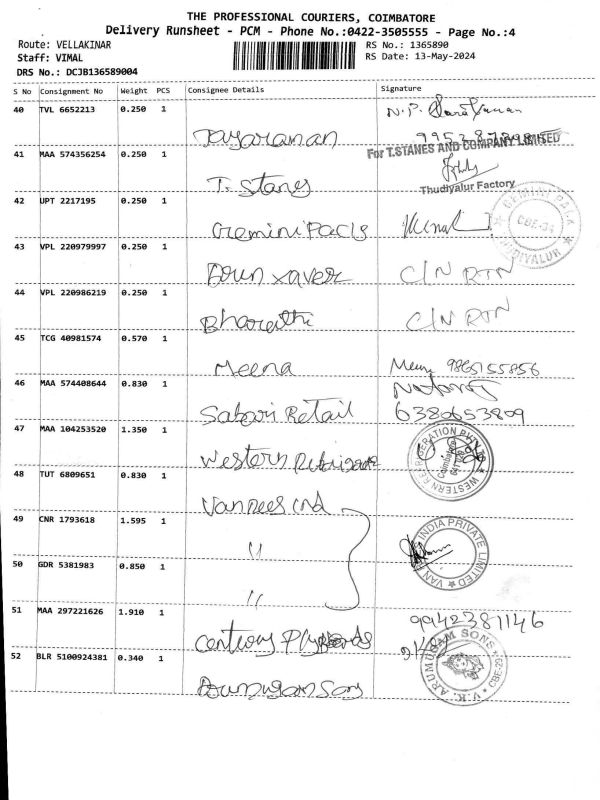 THE PROFESSIONAL COURIERS, COIMBATORE
Delivery Runsheet - PCM - Phone No.:0422-3505555 - Page No.:4
Route: VELLAKINAR
RS No.: 1365890
Staff: VIMAL
RS Date: 13-May-2024
DRS No.: DCJB136589004
S No Consignment No Weight PCS Consignee Details Signature
40 TVL 6652213 0.250 1
Jayaraman
41 MAA 574356254 0.250 1
For T.STANES AND COMPANY LIMITED
T. Stanes
Thudiyalur Factory
42 UPT 2217195 0.250 1
Gemini Packs
GEMINI PACK
CBE-34
43 VPL 220979997 0.250 1
Arun xaver C/N RTN
44 VPL 220986219 0.250 1
Bharathi C/N RTN
45 TCG 40981574 0.570 1
Meena Meena 9865155856
46 MAA 574408644 0.830 1
Sabari Retail 6380653809
47 MAA 104253520 1.350 1
Western Refrigerate
WESTERN REFRIGERATION PVT LTD
Coimbatore
48 TUT 6809651 0.830 1
Vannees ind
49 CNR 1793618 1.595 1
"
VAN INDIA PRIVATE LIMITED
50 GDR 5381983 0.850 1
"
51 MAA 297221626 1.910 1
9942381146
Century Plyboards
52 BLR 5100924381 0.340 1
Arumugam Sons
V.K. ARUMUGAM SONS
CBE-29